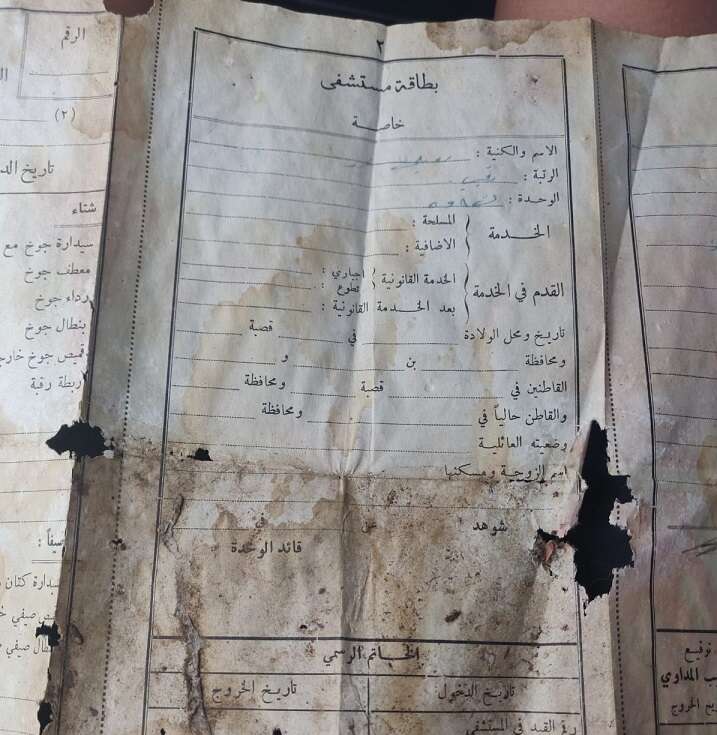 ٣
بطاقة مستشفى
خاصة
الاسم والكنية :
الرتبة :
الوحدة :
الخدمة
المسلحة :
الاضافية :
القدم في الخدمة
الخدمة القانونية
اجباري :
تطوع :
بعد الخدمة القانونية :
تاريخ ومحل الولادة في قصبة
ومحافظة بن و
القاطنين في قصبة ومحافظة
والقاطن حالياً في ومحافظة
وضعيته العائلية
اسم الزوجية ومسكنها
شوهد في
قائد الوحدة
الخاتم الرسمي
تاريخ الدخول تاريخ الخروج
رقم القيد في المستشفى
الرقم
(٢)
تاريخ
شتاء
سيدارة جوخ مع
معطف جوخ
رداء جوخ
بنطال جوخ
قميص جوخ
ربطة رقبة
سيدارة كتان
صيفي
صيفي
توقيع
المداوي
الخروج